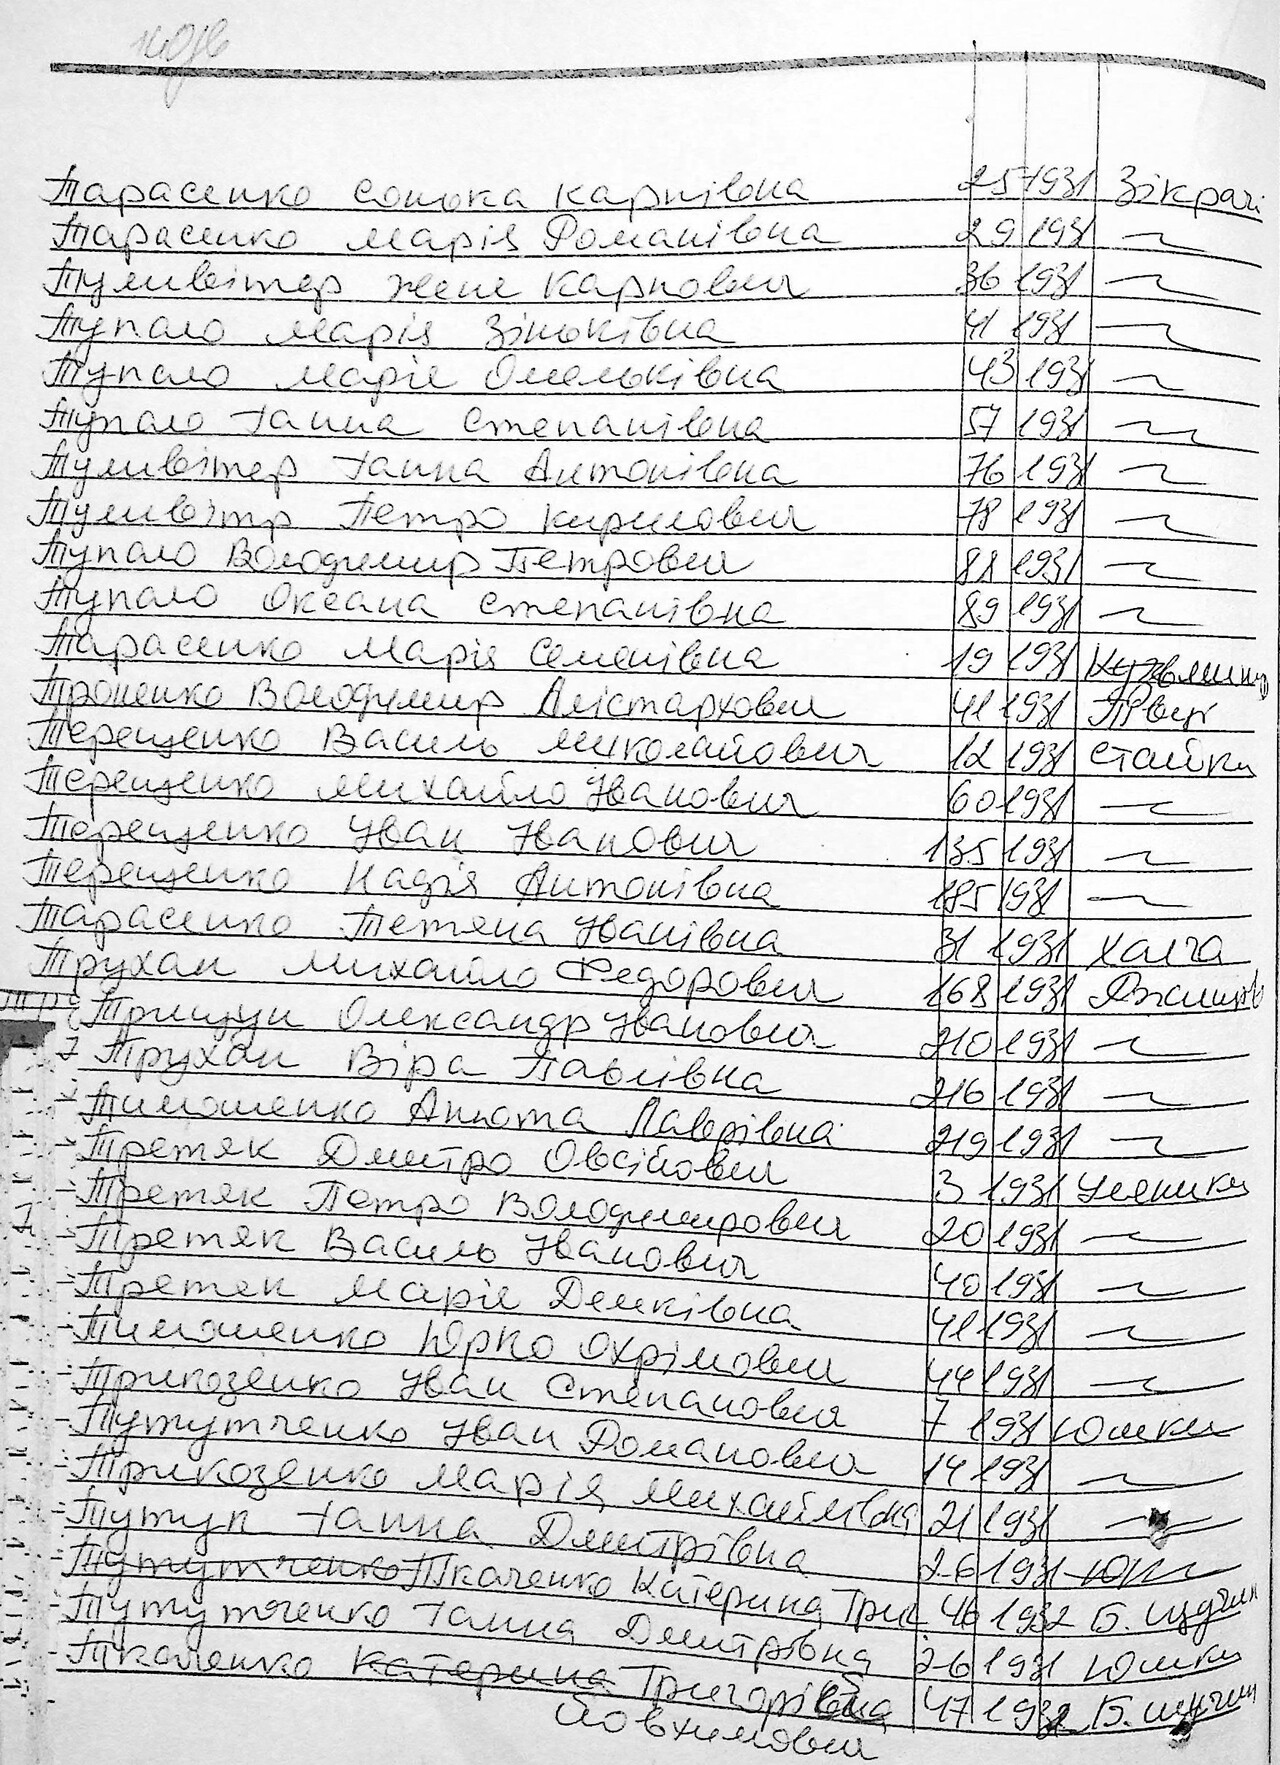 Тарасенко Сонька Карпівна 25 1931 Зікрачі
Тарасенко Марія Романівна 29 1931 〃
Тумвітер Жене Карпович 36 1931 〃
Тупало Марія Зіньківна 41 1931 〃
Тупало Маріє Омельківна 43 1931 〃
Тупало Ганна Степанівна 57 1931 〃
Тумвітер Ганна Антонівна 76 1931 〃
Тумвітр Петро Кирилович 78 1931 〃
Тупало Володимир Петрович 88 1931 〃
Тупало Оксана Степанівна 89 1931 〃
Тарасенко Марія Семенівна 19 1931
Троненко Володимир Алістархович 41 1931
Терещенко Василь Миколайович 12 1931 Стайки
Терещенко Михайло Іванович 60 1931 〃
Терещенко Іван Іванович 135 1931 〃
Терещенко Надія Антонівна 185 1931 〃
Тарасенко Тетяна Іванівна 31 1931 Халча
Трухан Михайло Федорович 168 1931
Трищун Олександр Іванович 210 1931 〃
Трухан Віра Павлівна 216 1931 〃
Тимошенко Анюта Лаврівна 219 1931 〃
Третяк Дмитро Овсійович 3 1931 Уляники
Третяк Петро Володимирович 20 1931 〃
Третяк Василь Іванович 40 1931 〃
Третяк Маріє Демківна 41 1931 〃
Тимошенко Юрко Охрімович 44 1931 〃
Трикозенко Іван Степанович 7 1931 Юшки
Тутутченко Іван Романович 14 1931 〃
Трикозенко Марія Михайлівна 21 1931 〃
Тутун Ганна Дмитрівна 26 1931
Тутутченко Ткаченко Катерина Григ. 46 1932 Б. Щучин
Тутутченко Ганна Дмитрівна 26 1931 Юшки
Ткаченко Катерина Григорівна 47 1932 Б. Щучин
Йовхимович